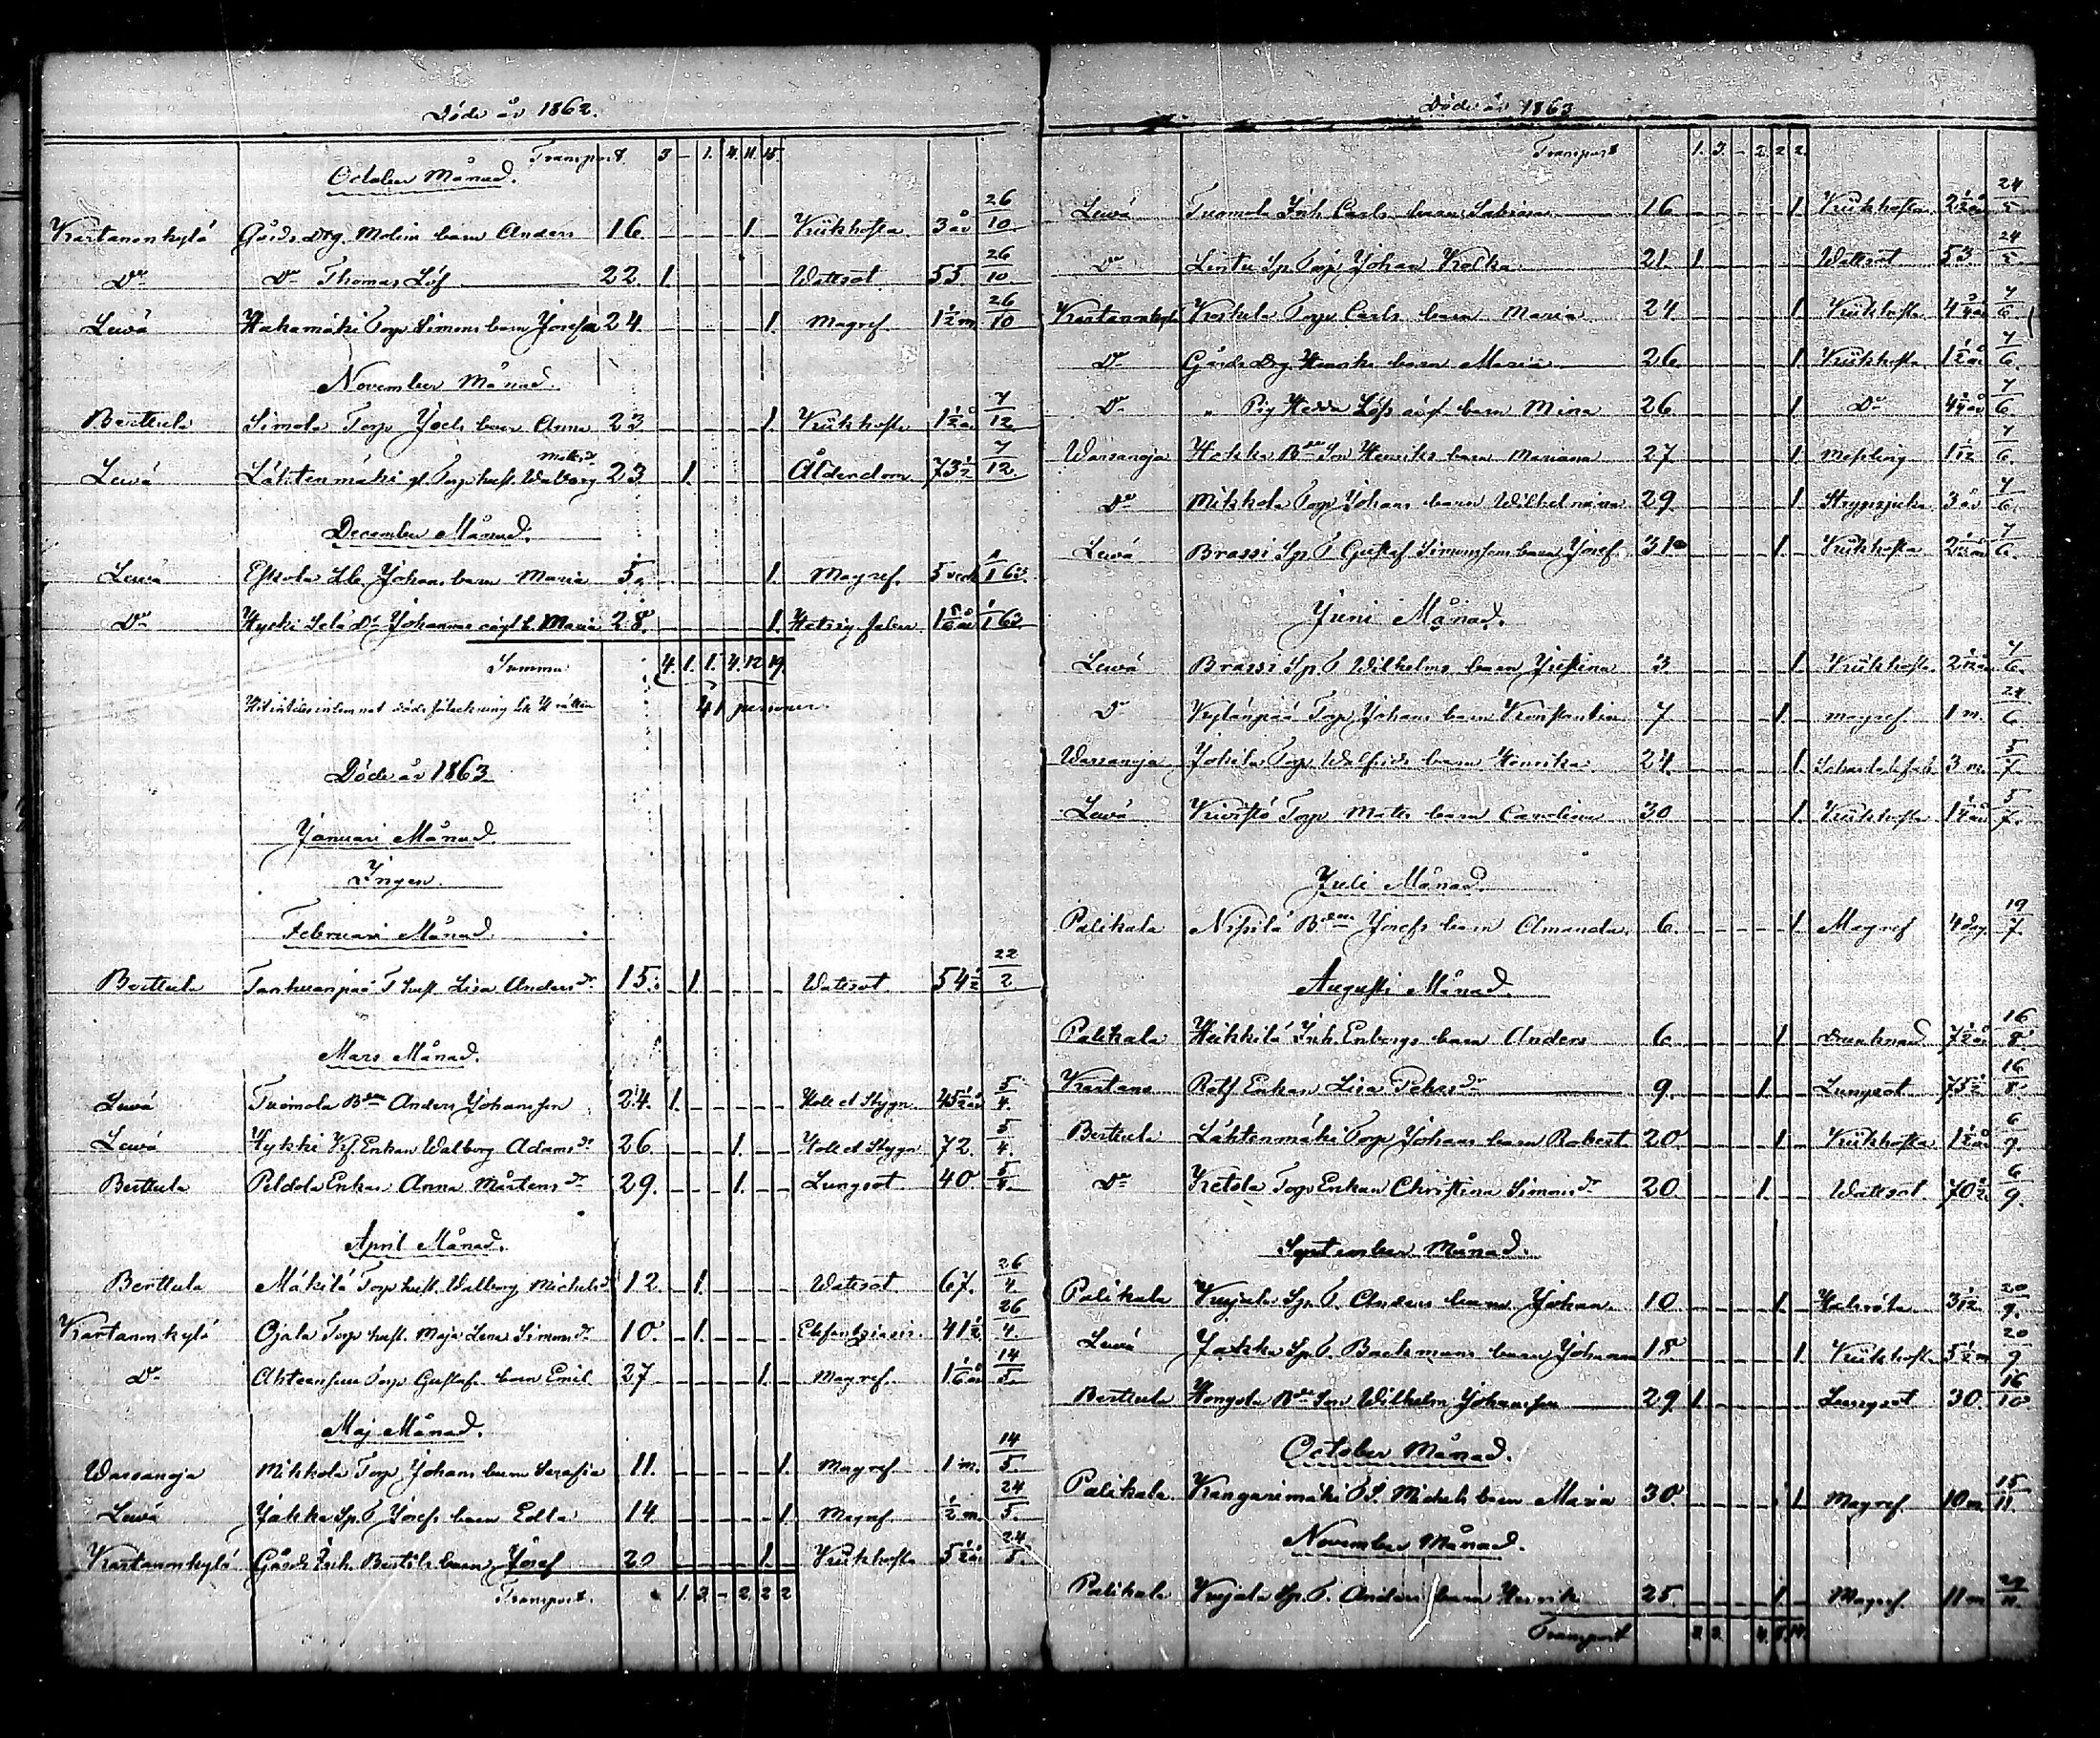 Döde år 1862.
Transport. 3 – 1. 4. 11. 15.
October Månad.
Kartanonkylä Gårds drg. Molin barn Anders 16. 1. Kikhosta 3 år 26/10
Do Do Thomas Löf 22 1. Wattsot 55. 26/10
Lewä Hakamäki Torp Simons barn Josefa 24. 1. Magref 1½ m 26/10
November Månad.
Berttula Simola Torp Joels barn Anna 23 1. Kikhosta 1½ år 7/12
Lewä Lähtenmäki gl. Torp hust. Walborg Mattsdr 23 1. Ålderdom 73½ 7/12
December Månad.
Lewä Eskola Johans barn Maria 5. 1. Magref. 5 veck 1/1 63.
Do Hycki Johannas oägt b. Maria 28. 1. Hetsig feber 1/1 63
Summa 4. 1. 1. 4. 12 19.
41 personer
Döde år 1863
Januari Månad.
Ingen.
Februari Månad
Berttula Tanhuanpää T. hust. Lisa Andersdr 15. 1. Wattsot 54½ 22/2
Mars Månad.
Lewä Tuomola Bdn Anders Johansson 24. 1. Håll et Stygn 45½ år 5/4.
Lewä Hykki Enkan Walborg Adamsdr 26 1. Håll et Stygn 72. 5/4.
Berttula Peldola Enkan Anna Mårtensdr 29. 1. Lungsot 40 5/4
April Månad.
Berttula Mäkilä Torp hust. Walborg Michelsdr 12. 1. Wattsot 67. 26/4
Kartanonkylä Ojala Torp hust. Maja Lena Simonsdr 10. 1. Elefantiasis. 41½ 26/4.
Do Ahteensuu Torp Gustafs barn Emil 27 1. Magref. 1 1/6 år 14/5.
Maj Månad.
Warsanoja Mikkola Torp Johans barn Serafia 11. 1. Magref 1 m. 14/5.
Lewä Jakka Sp. T. Josefs barn Edla 14. 1. Magref. ½ m 24/5.
Kartanonkylä Gårds Inh. Bertils barn Josef 20 1. Kikhosta 5½ år 24/5.
Transport. 1. 3. – 2. 2 2
Döde år 1863
Transport 1. 3. – 2. 2 2.
Lewä Tuomola Inh. Carls barn Sabina 16 1. Kikhosta 2½ år 24/5
Do Lintu Sp. Torp Johan Kolka 21. 1. Wattsot 53. 24/5
Kartanonkylä Koskela Torp Carls barn Maria 24 1. Kikhosta 4¾ år 7/6.
Do Gårds Drg Henriks barn Maria 26. 1. Kikhosta 1½ år 7/6.
Do „ Pig Hedda Löfs oäg. barn Mina 26 1. Do 4¼ år 7/6
Warsanoja Hokka Bde Son Henriks barn Mariana 27 1. Messling 1½ 7/6.
Do Mikkola Torp Johans barn Wilhelmina 29. 1. Strypsjuka 3 år 7/6.
Lewä Brassi Sp. T. Gustaf Simonssons barn Josef 31 1. Kikhosta 7/6.
Juni Månad.
Lewä Brassi Sp. T. Wilhelms barn Justina 3 1. Kikhosta 7/6.
Do Kylänpää Torp Johans barn Konstantin 7 1. Magref 1 m. 24/6
Warsanoja Jokila Torp Walfrids barn Henrika 24. 1. 3 m. 5/7.
Lewä Kivistö Torp Matts barn Carolina 30 1. Kikhosta 1¼ år 5/7.
Juli Månad
Palikala Nipilä Bden Josefs barn Amanda 6. 1. Magref 4 dg. 19/7.
Augusti Månad.
Palikala Heikkilä Inh. Enbergs barn Anders 6 1. Drunknad 7½ år 16/8
Kartano Rotf Enkan Lisa Petersdr 9. 1. Lungsot 75½ 16/8
Berttula Lähtenmäki Torp Johans barn Robert 20 1. Kikhosta 1½ år 6/9.
Do Ketola Torp Enkan Christina Simonsdr 20 1. Wattsot 70½ 6/9.
September Månad.
Palikala Kujala Sp. T. Anders barn Johan 10 1. Halsröta 3½ 20/9.
Lewä Jakka Sp. T. Backmans barn Johanna 18 1. Kikhosta 5½ m 20/9
Berttula Hongola Bde Son Wilhelm Johansson 29 1. Lungsot 30 16/10
October Månad.
Palikala Kangarimäki T. S. Michels barn Maria 30 1. Magref 10 m. 15/11.
November Månad.
Palikala Kujala Sp. T. Anders barn Henrik 25. 1. Magref 11 m 29/11.
Transport 3. 3. 4. 8. 14.